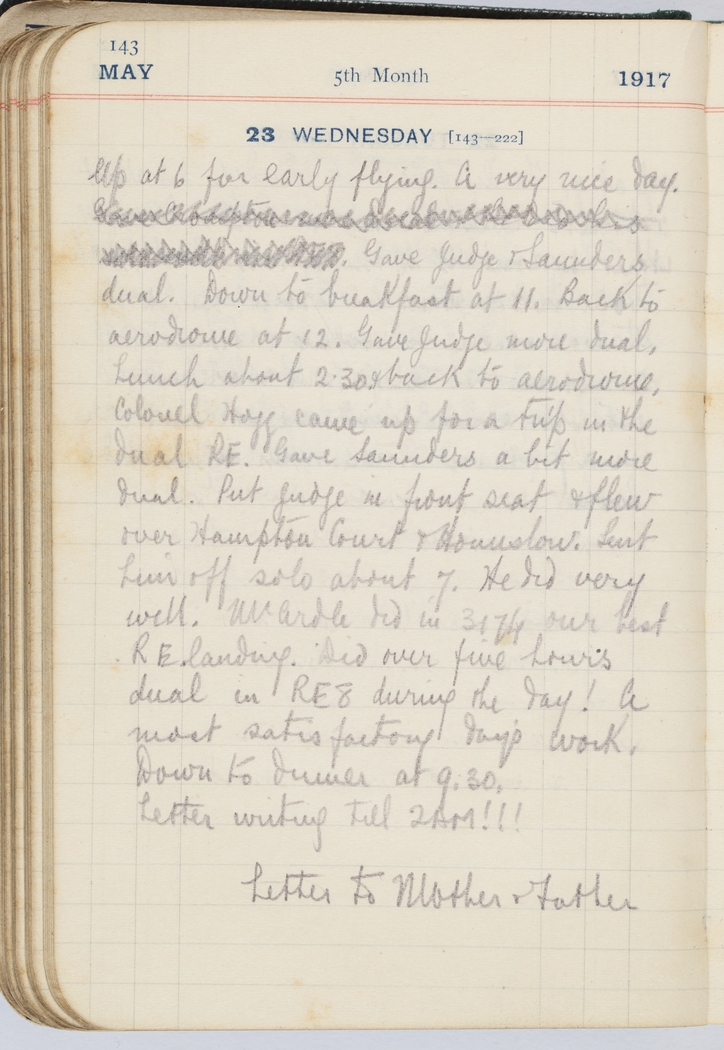 143
MAY 5th Month 1917
23 WEDNESDAY [143—222]
Up at 6 for early flying. A very nice day.
Gave Judge & Saunders
dual. Down to breakfast at 11. Back to
aerodrome at 12. Gave Judge more dual.
Lunch about 2.30 & back to aerodrome.
Colonel Hogg came up for a trip in the
dual RE. Gave Saunders a bit more
dual. Put Judge in front seat & flew
over Hampton Court & Hounslow. Sent
him off solo about 7. He did very
well. McArdle did in 3174 our best
R.E. landing. Did over five hours
dual in RE8 during the day! A
most satisfactory day's work.
Down to dinner at 9.30.
Letter writing till 2AM!!!
Letter to Mother & Father